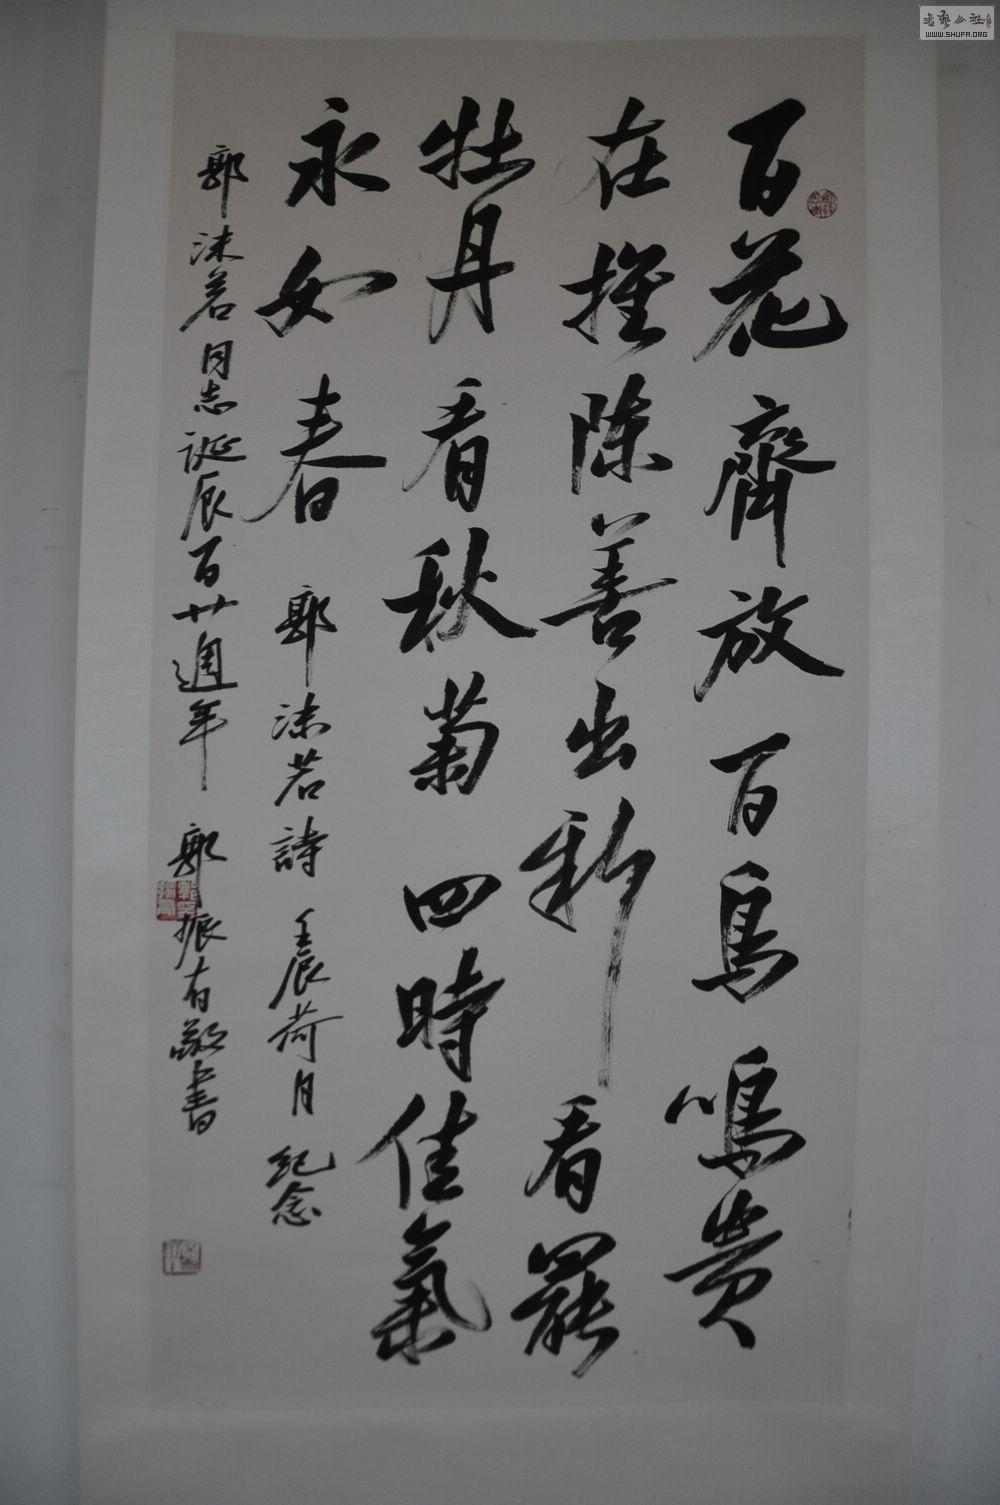 百花齊放百鳥鳴貴
在推陳善出新看罷
牡丹看秋菊四時佳氣
永如春 郭沫若詩 壬辰荷月 紀念
郭沫若同志誕辰百廿週年 郭振有敬書
书艺公社
WWW.SHUFA.ORG